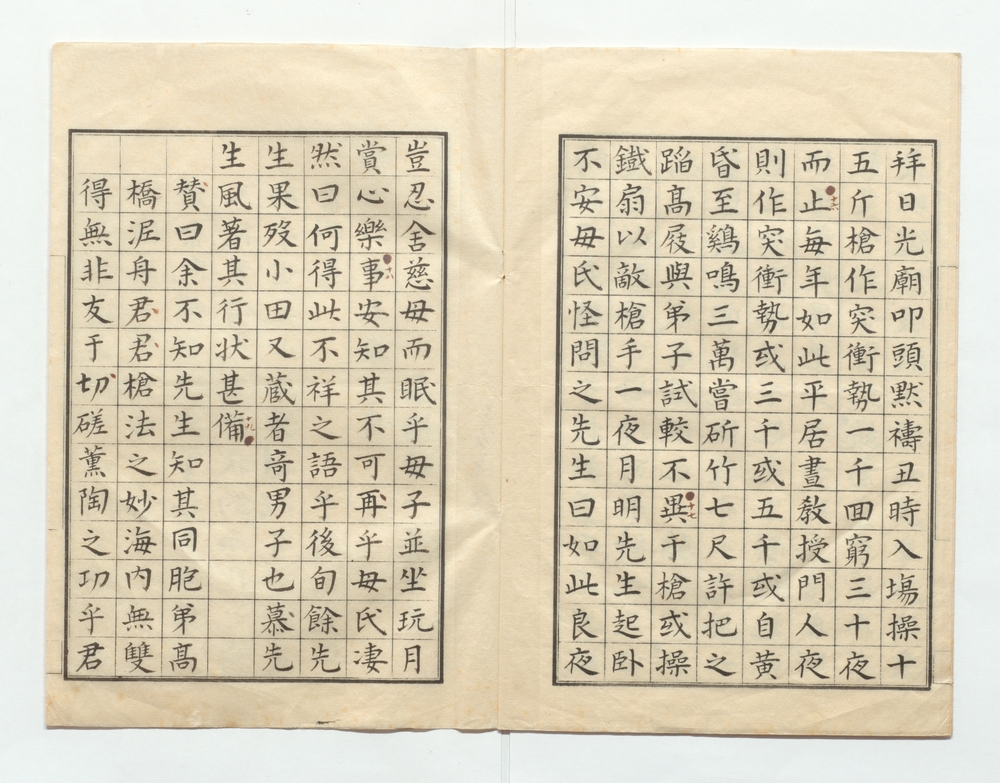 拜日光廟叩頭默禱丑時入塲操十
五斤槍作突衝勢一千回窮三十夜
而止每年如此平居晝教授門人夜
則作突衝勢或三千或五千或自黃
昏至鷄鳴三萬嘗斫竹七尺許把之
蹈高屐與弟子試較不異于槍或操
鐵扇以敵槍手一夜月明先生起臥
不安母氏怪問之先生曰如此良夜
豈忍舍慈母而眠乎母子並坐玩月
賞心樂事安知其不可再乎母氏凄
然曰何得此不祥之語乎後旬餘先
生果歿小田又蔵者奇男子也慕先
生風著其行狀甚備
贊曰余不知先生知其同胞弟高
橋泥舟君君槍法之妙海內無雙
得無非友于切磋薰陶之功乎君
十六
十七
十八
十九